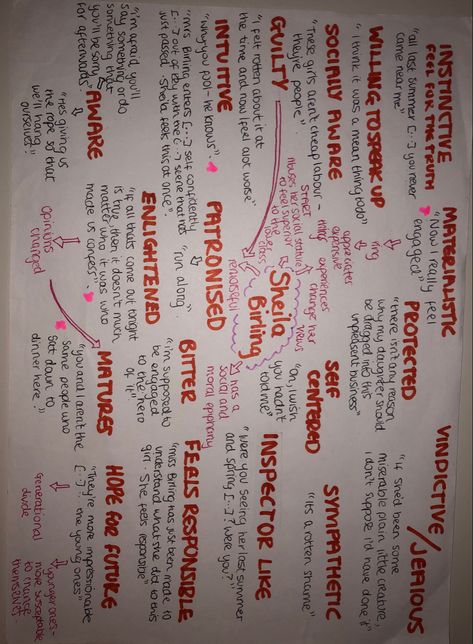 INSTINCTIVE
FEEL FOR THE TRUTH
"all last summer [...] you never
came near me"
WILLING TO SPEAK UP
"I think it was a mean thing to do"
SOCIALLY AWARE
"These girls aren't cheap labour -
they're people"
GUILTY
"I felt rotten about it at
the time and now I feel alot worse"
INTUITIVE
"why you fool - he knows".
"Mrs Birling enters [...] self confidently
[...] out of key with the [...] scene that has
just passed. Sheila feels this at once".
"I'm afraid you'll
say something or do
something that
you'll be sorry
for afterwards"
AWARE
"He's giving us
the rope so that
we'll hang
ourselves"
MATERIALISTIC
"Now I really feel
engaged"
ring
appreciates
expensive
things
START
abuses her social stature
to feel superior
to the lower
class
experiences
change her
views
Sheila
Birling
remorseful
PATRONISED
"run along"
ENLIGHTENED
"If all thats come out tonight
is true, then it doesn't much
matter who it was who
made us confess"
opinions
changed
PROTECTED
"there isn't any reason
why my daughter should
be dragged into this
unpleasent business"
SELF
CENTERED
"oh, I wish
you hadn't
told me"
has a
social and
moral epiphany
BITTER
"I'm supposed to
be engaged
to the hero
of it"
MATURES
"you and I aren't the
same people who
sat down to
dinner here"
VINDICTIVE
/JEALOUS
"If she'd been some
miserable plain little creature,
I don't suppose I'd have done it"
SYMPATHETIC
"its a rotten shame"
INSPECTOR LIKE
"were you seeing her last summer
and spring [...]? Were you?"
FEELS RESPONSIBLE
"miss Birling has just been made to
understand what she did to this
girl. She feels responsible"
HOPE FOR FUTURE
"They're more impressionable
[...] the young ones"
Generational
divide
younger ones -
more susceptable
to change
themselves